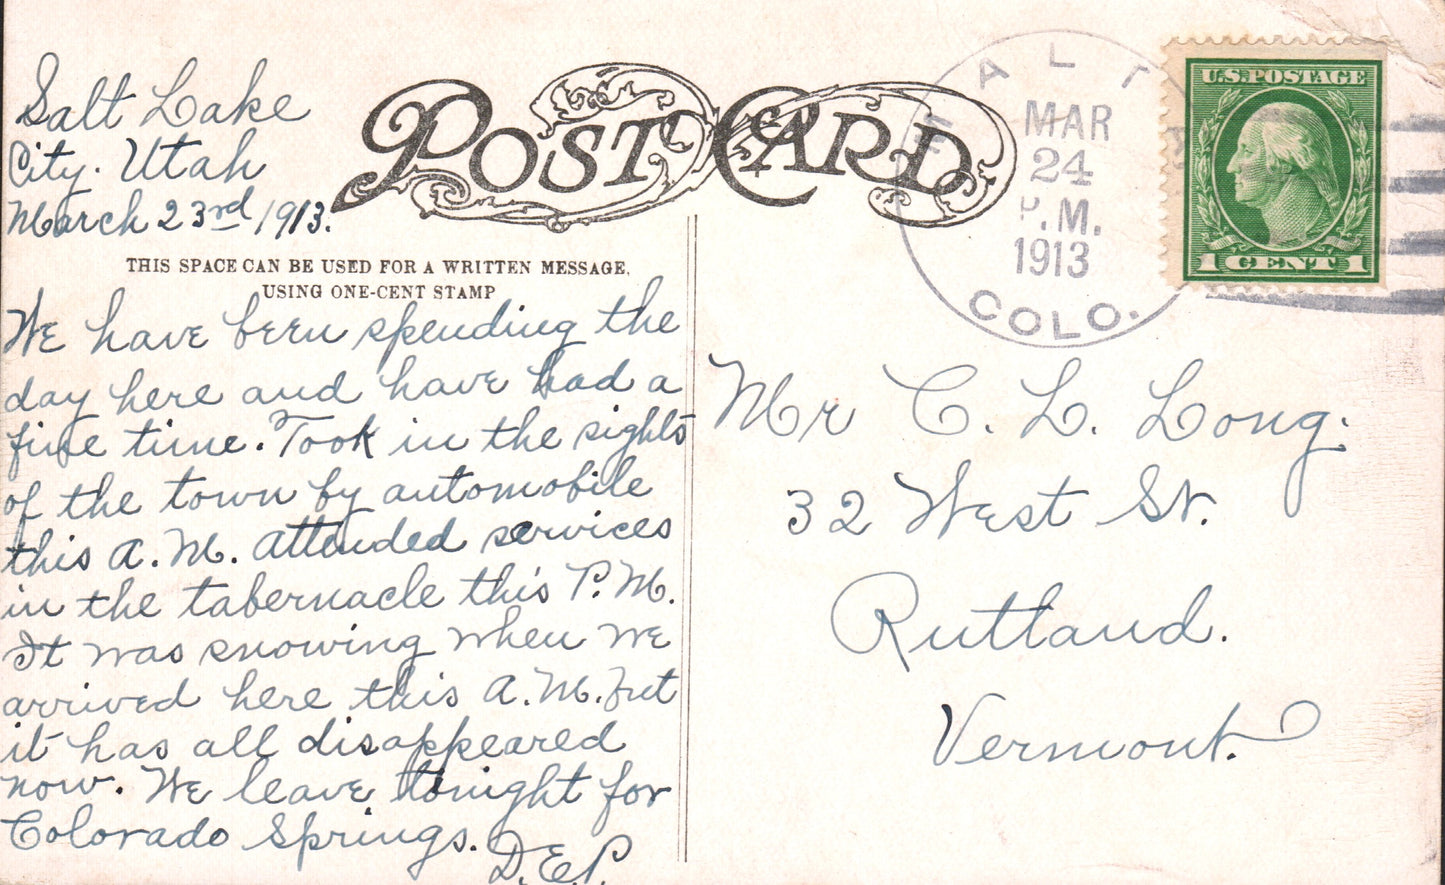 Salt Lake
City. Utah
March 23rd 1913.
POST CARD
THIS SPACE CAN BE USED FOR A WRITTEN MESSAGE,
USING ONE-CENT STAMP
We have been spending the
day here and have had a
fine time. Took in the sights
of the town by automobile
this A.M. Attended services
in the tabernacle this P.M.
It was snowing when we
arrived here this A.M. but
it has all disappeared
now. We leave tonight for
Colorado Springs.
D.E.P.
MAR
24
P.M.
1913
COLO.
U.S. POSTAGE
1 CENT 1
Mr C. L. Long.
32 West St.
Rutland.
Vermont.